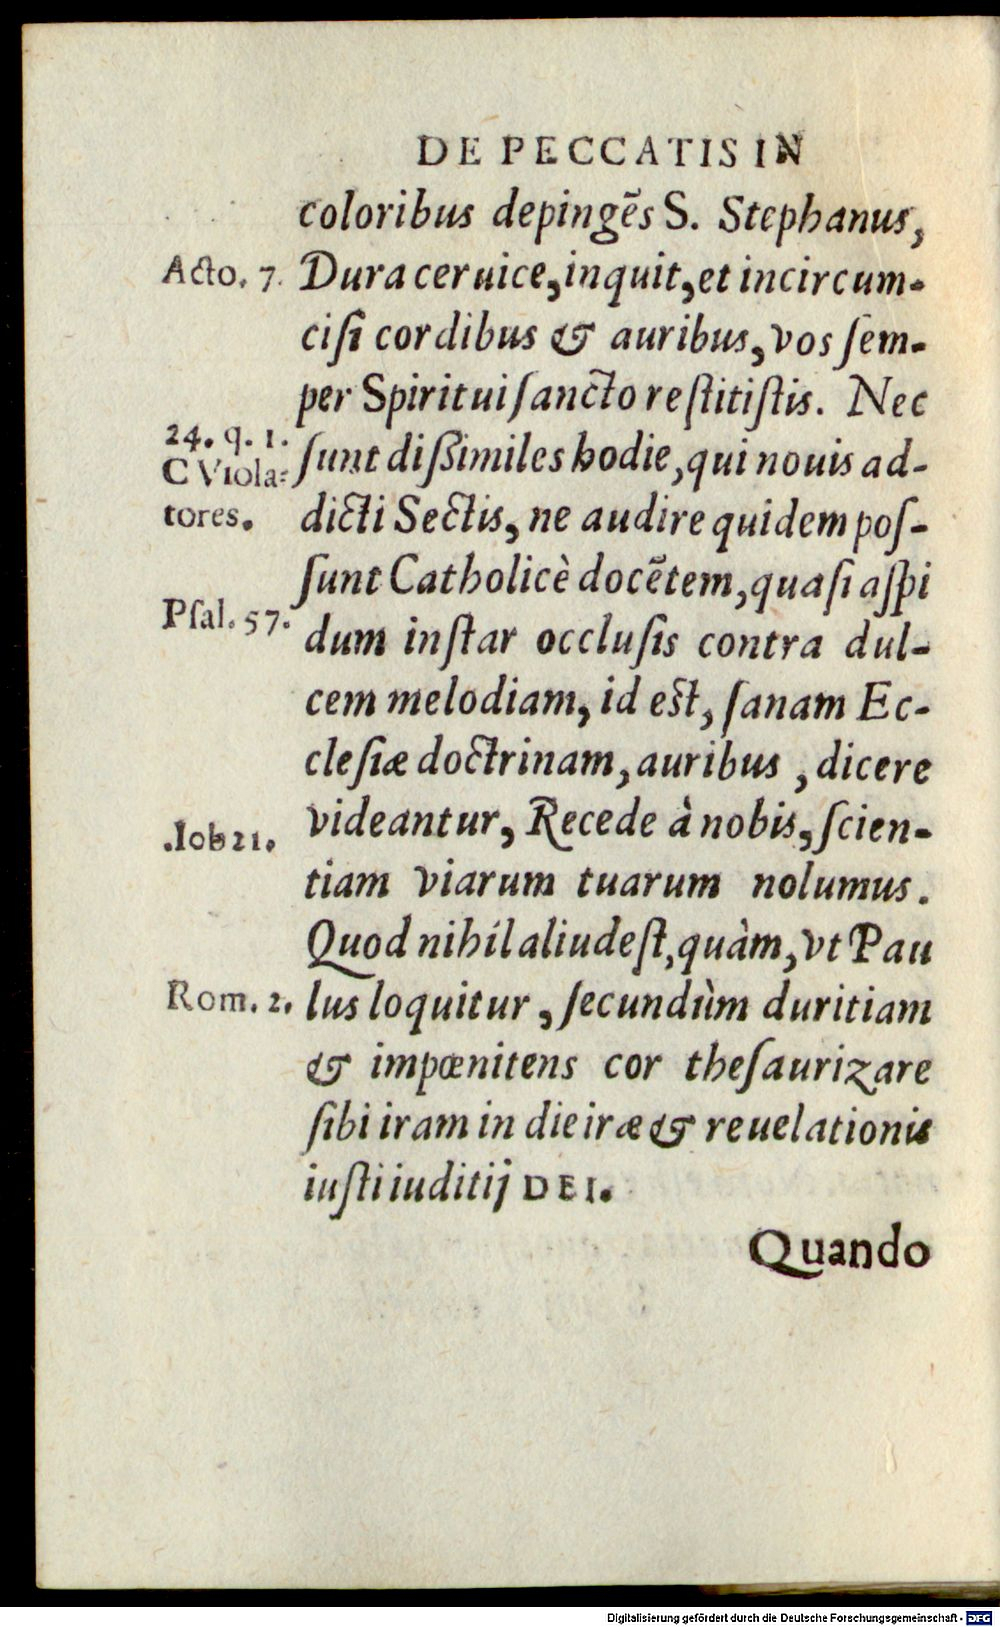 DE PECCATIS IN
coloribus depingēs S. Stephanus,
Acto. 7. Dura ceruice, inquit, et incircum-
cisi cordibus & auribus, vos ſem-
per Spiritui ſancto reſtitiſtis. Nec
24. q. 1.
C Viola-
tores.
ſunt diſsimiles hodie, qui nouis ad-
dicti Sectis, ne audire quidem poſ-
ſunt Catholicè docētem, quaſi aſpi
Pſal. 57.
dum inſtar occluſis contra dul-
cem melodiam, id est, ſanam Ec-
cleſiæ doctrinam, auribus, dicere
.Iob 21. videantur, Recede à nobis, ſcien-
tiam viarum tuarum nolumus.
Quod nihil aliud eſt, quàm, vt Pau
Rom. 2. lus loquitur, ſecundùm duritiam
& impœnitens cor theſaurizare
ſibi iram in die iræ & reuelationis
iuſti iuditij DEI.
Quando
Digitalisierung gefördert durch die Deutsche Forschungsgemeinschaft - DFG